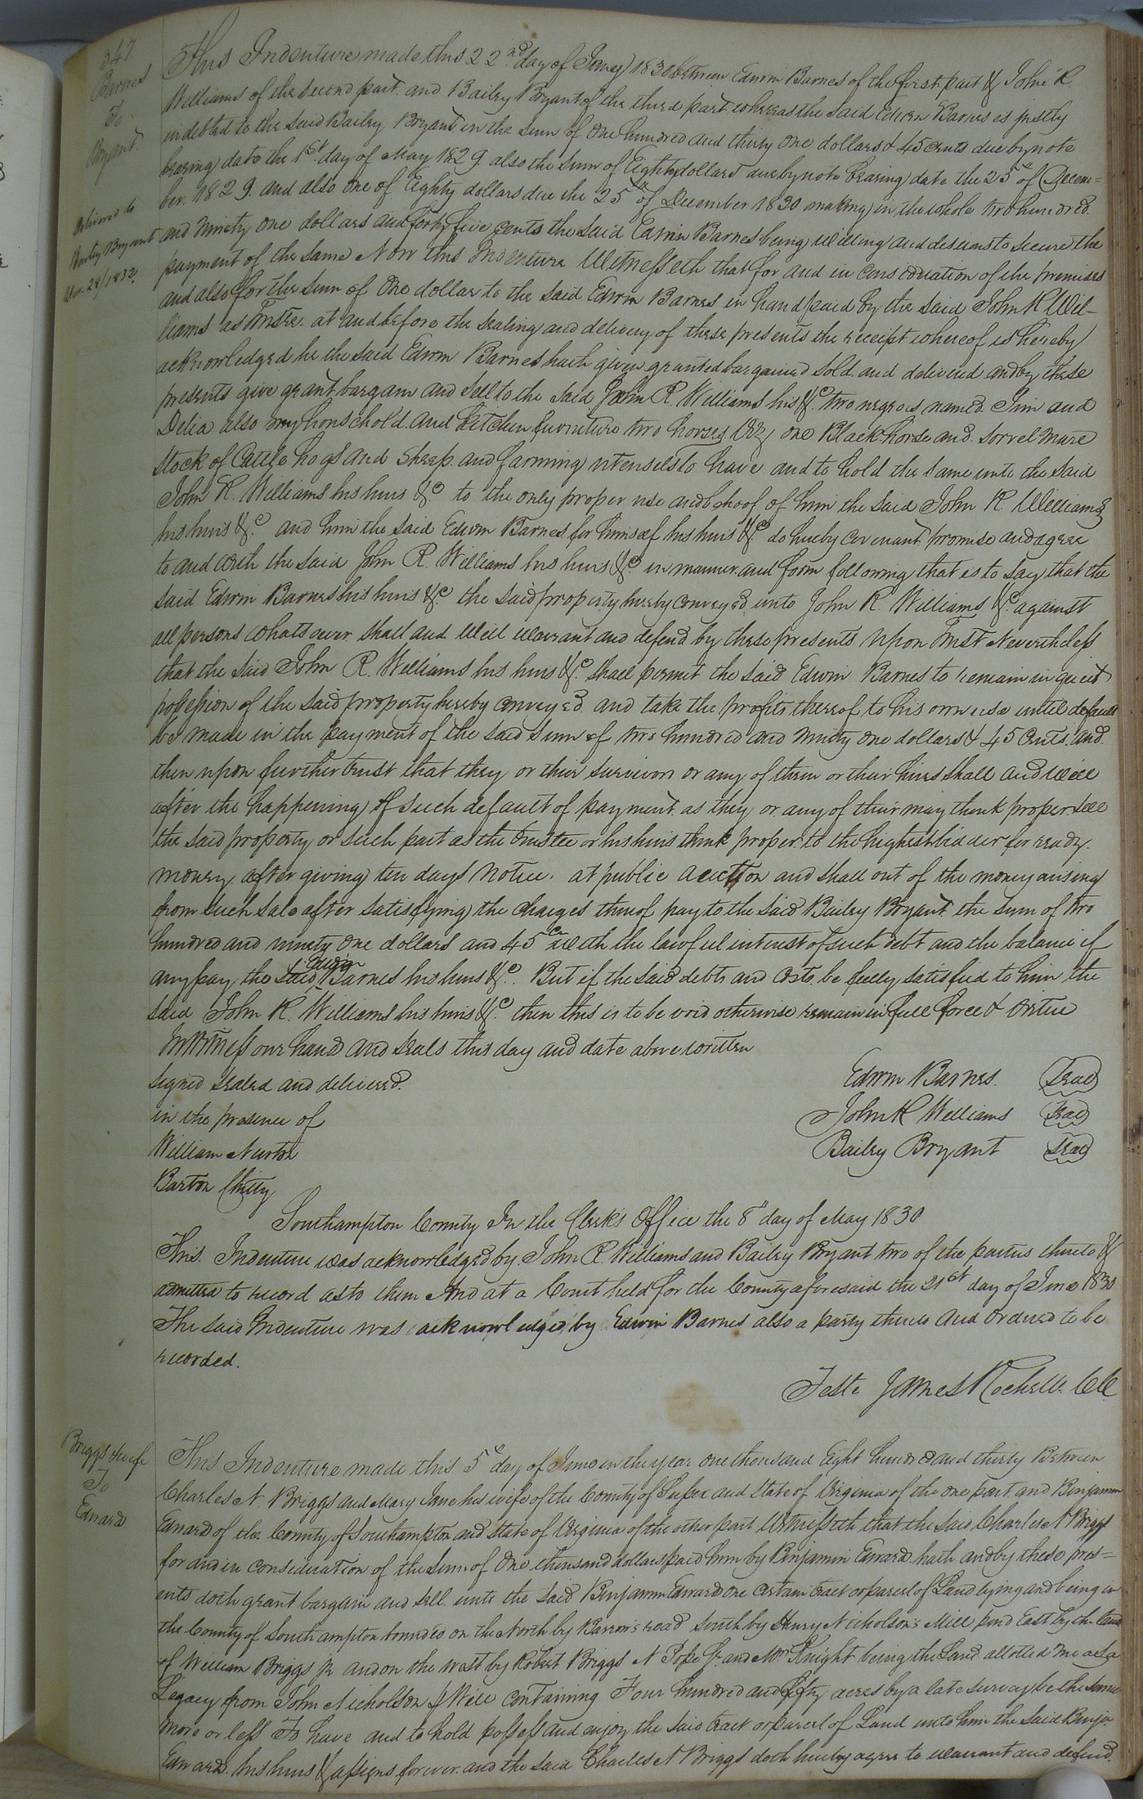 347
Barnes
To
Bryant
Delivered to
Bailey Bryant
1832
This Indenture made this 22nd day of 1830 between Edwin Barnes of the first part & John R.
Williams of the second part and Bailey Bryant of the third part whereas the said Edwin Barnes is justly
indebted to the said Bailey Bryant in the sum of One hundred and thirty One dollars & 45 cents due by note
bearing date the 1st day of May 1829 also the sum of Eighty dollars due by note bearing date the 25th of Decem=
ber 1829 and also one of Eighty dollars due the 25th of December 1830 making in the whole two hundred
and Ninety one dollars and forty five cents the said Edwin Barnes being willing and desirous to secure the
payment of the same Now this Indenture Witnesseth that for and in consideration of the premises
and also for the sum of One dollar to the said Edwin Barnes in hand paid by the said John R Wil-
liams as Trustee at and before the sealing and delivery of these presents the receipt whereof is hereby
acknowledged he the said Edwin Barnes hath given granted bargained sold and delivered and by these
presents give grant bargain and sell to the said John R. Williams his &c two negroes, named Jim and
Delia also my household and kitchen furniture two horses viz, one Black horse and Sorrel mare
Stock of Cattle hogs and sheep and farming utensels to have and to hold the same unto the said
John R. Williams his heirs &c to the only proper use and behoof of him the said John R Williams
his heirs &c and him the said Edwin Barnes for himself his heirs &c do hereby covenant promise and agree
to and with the said John R. Williams his heirs &c in manner and form following that is to say that the
said Edwin Barnes his heirs &c the said property hereby conveyed unto John R. Williams &c against
all persons whatsoever shall and will warrant and defend by these presents upon Trust Nevertheless
that the said John R. Williams his heirs &c shall permit the said Edwin Barnes to remain in quiet
possession of the said property hereby conveyed and take the profits thereof to his own use until default
be made in the payment of the said sum of two hundred and Ninety one dollars & 45 Cents and
then upon further trust that they or their survivors or any of them or their heirs shall and will
after the happening of such default of payment as they or any of their may think proper sell
the said property or such part as the trustee or his heirs think proper to the highest bidder for ready
money after giving ten days notice at public auction and shall out of the money arising
from such sale after satisfying the charges thereof pay to the said Bailey Bryant the sum of two
hundred and ninety One dollars and 45 c with the lawful interest of such debt and the balance if
any pay, the said Edwin Barnes his heirs &c. But if the said debts and costs be fully satisfied to him the
said John R. Williams his heirs &c then this is to be void otherwise remain in full force & virtue
In Witness our hand and seals this day and date above written
Signed sealed and delivered
in the presence of
William Newton
Barton Chitty
Edwin Barnes. Seal
John R Williams Seal
Bailey Bryant Seal
Southampton County In the Clerk's Office the 8th day of May 1830
This Indenture was acknowledged by John R. Williams and Bailey Bryant two of the parties thereto &
admitted to record as to them And at a Court held for the County aforesaid the 21st day of June 1830
The said Indenture was acknowledged by Edwin Barnes also a party thereto and Ordered to be
recorded.
Teste James Rochelle CC
Briggs & wife
To
Edwards
This Indenture made this 5th day of June in the year one thousand Eight hundred and thirty Between
Charles N Briggs and Mary Jane his wife of the County of Sussex and State of Virginia of the one part and Benjamin
Edwards of the County of Southampton and State of Virginia of the other part Witnesseth that the said Charles N Briggs
for and in consideration of the sum of One thousand dollars paid him by Benjamin Edwards hath and by these pres=
ents doth grant bargain and sell unto the said Benjamin Edwards one certain tract or parcel of Land lying and being in
the County of Southampton bounded on the North by Barrow's road South by Henry Nicholson's Mill pond East by the land
of William Briggs Jr. and on the west by Robert Briggs N Pope Jr and Mr Knight being the Land allotted me as a
Legacy from John Nicholson Will containing Four hundred and fifty acres by a late survey be the same
more or less To have and to hold possess and enjoy the said tract or parcel of Land unto him the said Benja
Edwards his heirs & assigns forever and the said Charles N Briggs doth hereby agree to warrant and defend